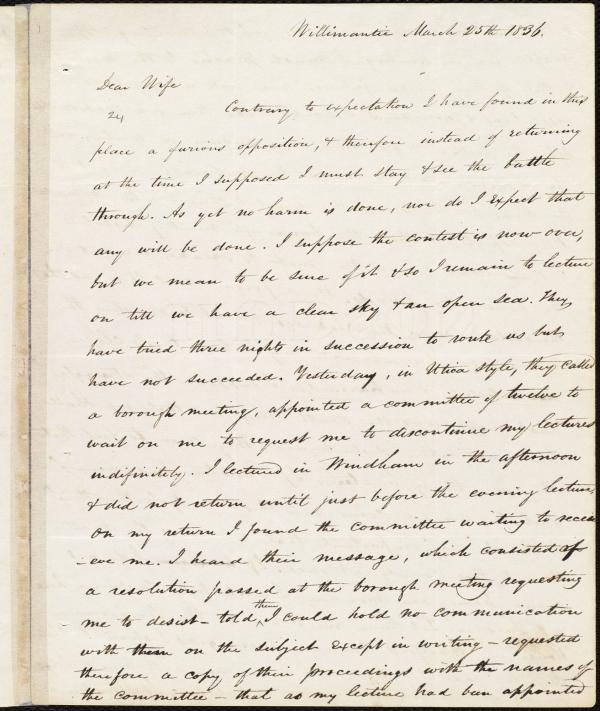 Willimantic March 25th 1836.
Dear Wife
Contrary to expectation I have found in this
place a furious opposition, & therefore instead of returning
at the time I supposed I must stay & see the battle
through. As yet no harm is done, nor do I expect that
any will be done. I suppose the contest is now over,
but we mean to be sure of it & so I remain to lecture
on till we have a clear sky & an open sea. They
have tried three nights in succession to route us but
have not succeeded. Yesterday, in Utica style, they called
a borough meeting, appointed a committee of twelve to
wait on me to request me to discontinue my lectures
indifinitely. I lectured in Windham in the afternoon
& did not return until just before the evening lecture.
On my return I found the committee waiting to rece
-eve me. I heard their message, which consisted of
a resolution passed at the borough meeting requesting
me to desist - told them I could hold no communication
with them on the subject except in writing - requested
therefore a copy of their proceedings with the names of
the committee - that as my lecture had been appointed